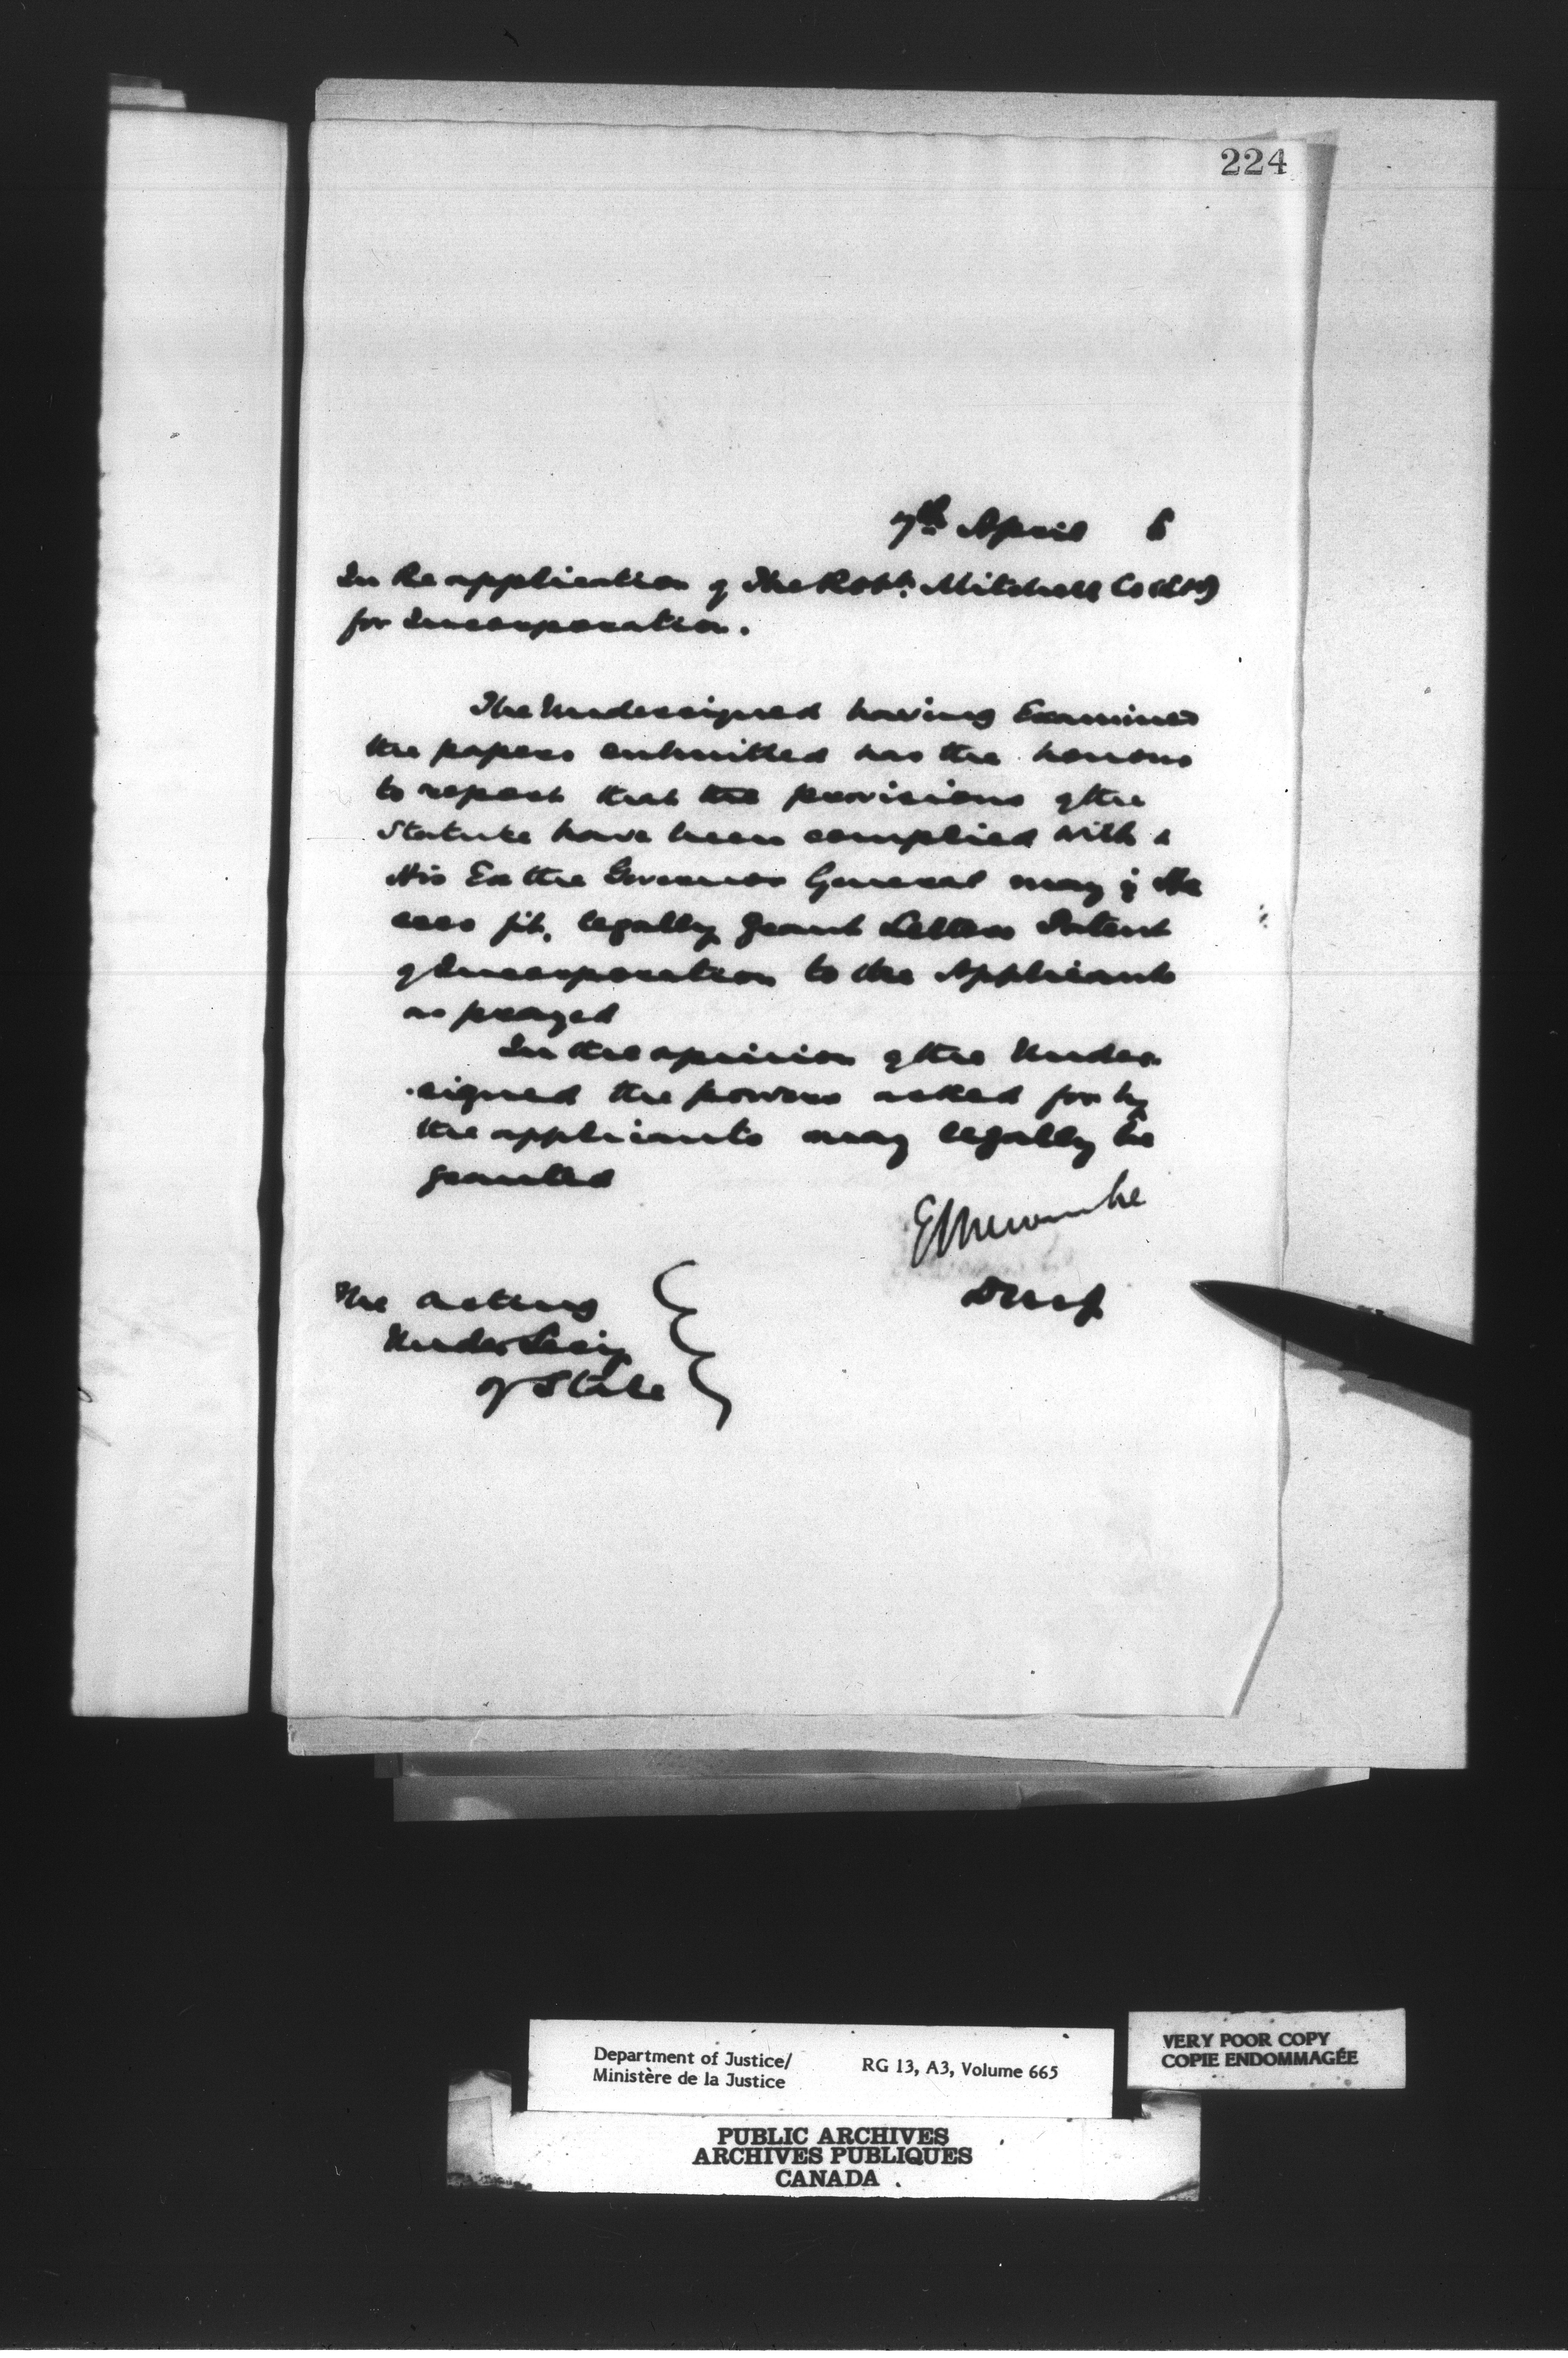 224
7th April 6
In Re application of The Robt. Mitchell Co (Ltd)
for Incorporation.
The Undersigned having Examined
the papers submitted has the honour
to report that the provisions of the
Statute have been complied with &
His Ex the Governor General may if He
sees fit, legally grant Letters Patent
of Incorporation to the Applicants
as prayed
In the opinion of the Under
signed the powers asked for by
the applicants may legally be
granted
E L Newcombe
DMJ
The Acting
Under Secy
of State
Department of Justice/ RG 13, A3, Volume 665
Ministère de la Justice
VERY POOR COPY
COPIE ENDOMMAGÉE
PUBLIC ARCHIVES
ARCHIVES PUBLIQUES
CANADA